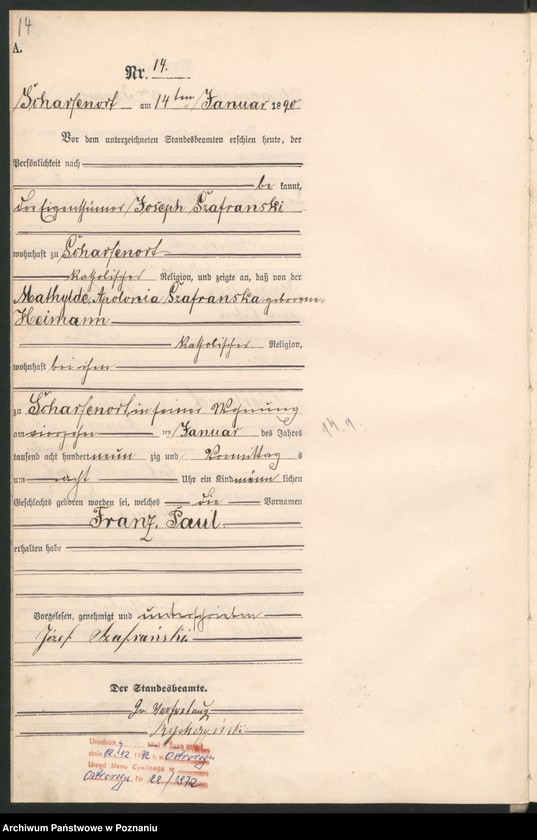 14
A.
Nr. 14.
Scharfenort am 14ten Januar 1890
Vor dem unterzeichneten Standesbeamten erschien heute, der
Persönlichkeit nach
be kannt,
der Eigenthümer Joseph Szafranski
wohnhaft zu Scharfenort
katholischer Religion, und zeigte an, daß von der
Mathylde, Apolonia Szafranska geborenen
Heimann
katholischer Religion,
wohnhaft bei ihm
zu Scharfenort, in seiner Wohnung
am vierzehn ten Januar des Jahres
tausend acht hundert neun zig und Vormittag s
um acht Uhr ein Kind männ lichen
Geschlechts geboren worden sei, welches die Vornamen
Franz, Paul
erhalten habe
Vorgelesen, genehmigt und unterschrieben
Józef Szafrański
Der Standesbeamte.
In Vertretung
dnia 18.12 1972 r. w Ostrorogu
Urząd Stanu Cywilnego w
Ostrorogu Nr 22/1972
14.1.
Archiwum Państwowe w Poznaniu